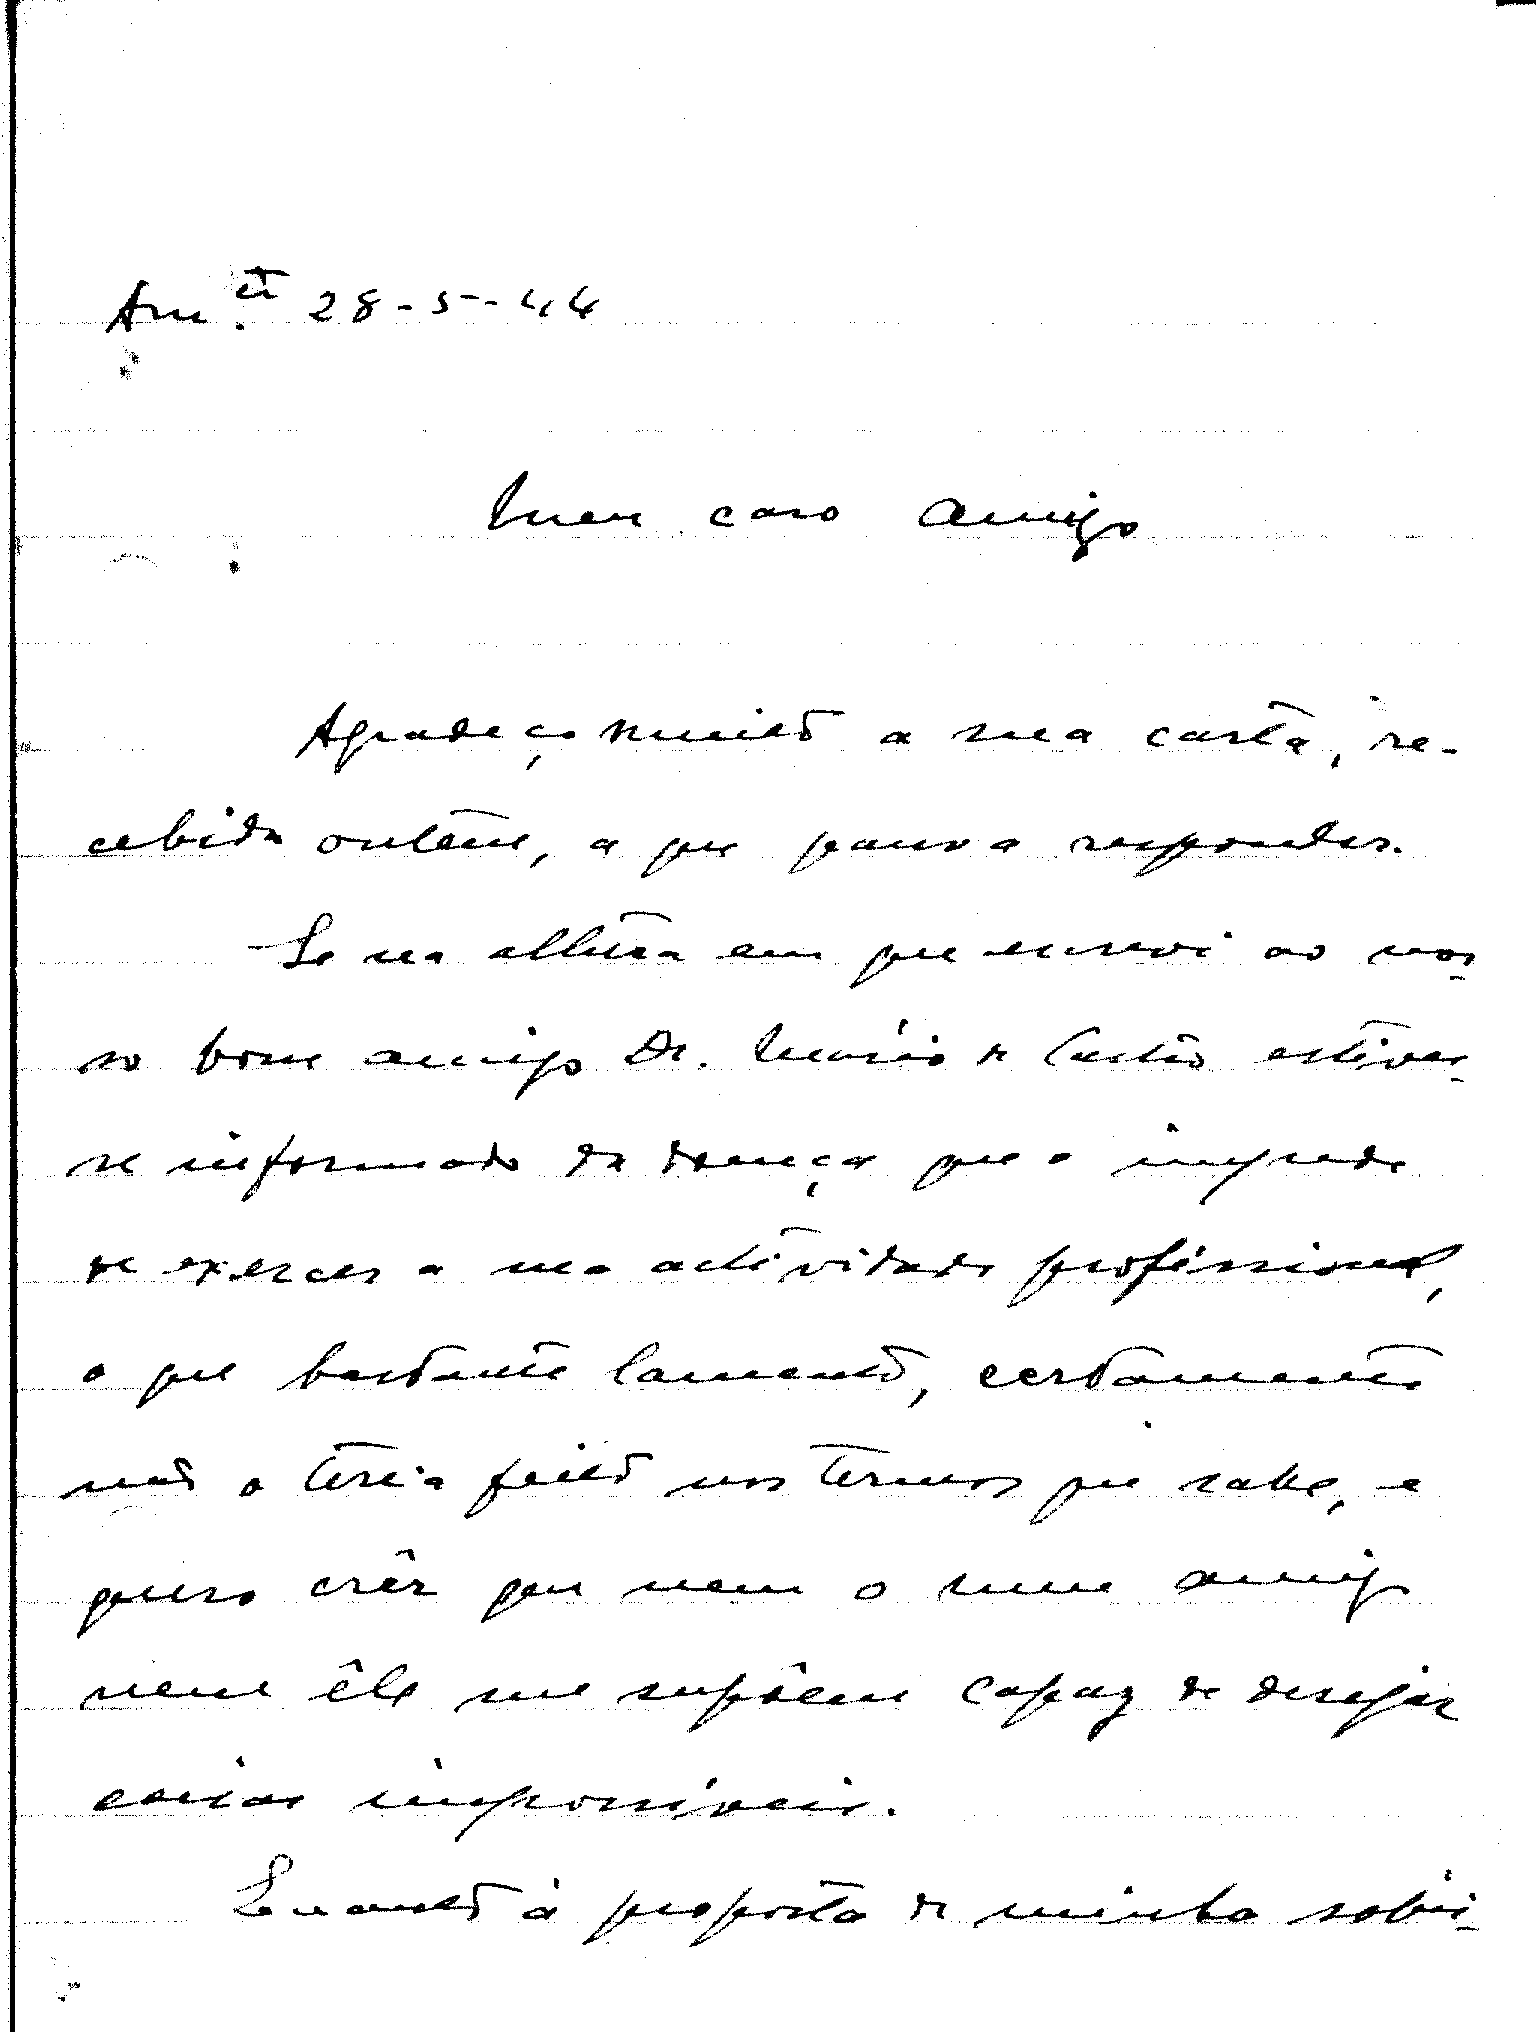 Am.te 28-5-44
Meu caro Amigo
Agradeço muito a sua carta, re-
cebida ontem, a que passo a responder.
Se na altura em que escrevi ao nos-
so bom amigo Dr. Mário de Castro estives-
se informado da doença que o impede
de exercer a sua actividade profissional,
o que bastante lamento, certamente
não o teria feito nos termos que sabe, e
quero crêr que nem o meu amigo
nem êle me supõem capaz de desejar
coisas impossíveis.
Quanto à proposta de minha sobri-